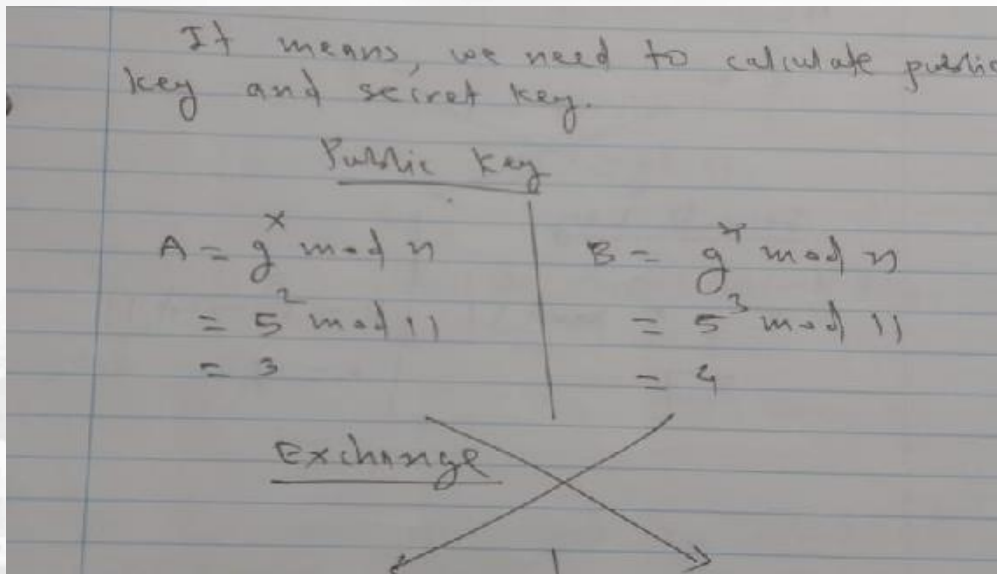 It means, we need to calculate public
key and secret key.
Public Key
A = g^x mod n
B = g^y mod n
= 5^2 mod 11
= 5^3 mod 11
= 3
= 4
Exchange